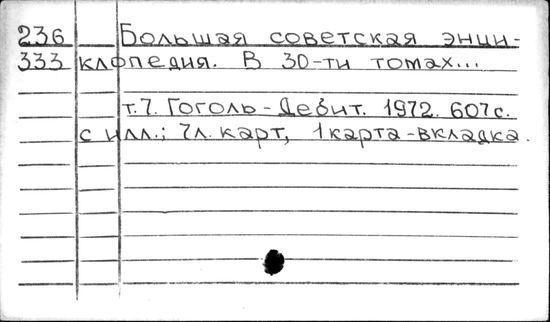 236 Большая советская энци-
333 клопедия. В 30-ти томах...
т.7. Гоголь - Дебит. 1972. 607с.
с илл.; 7л. карт, 1 карта-вкладка.